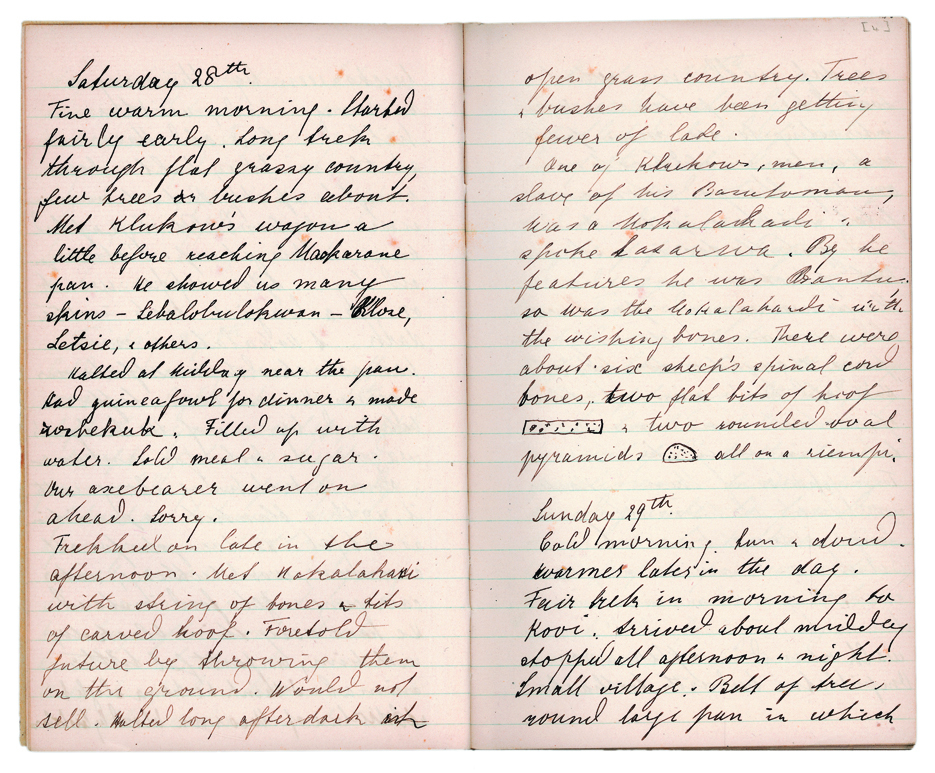 Saturday 28th.
Fine warm morning. Started
fairly early. Long trek
through flat grassy country,
few trees or bushes about.
Met Klukow's wagon a
little before reaching Maokarane
pan. He showed us many
skins – Lebalobulokwan – Klose,
Letsie, & others.
Halted at midday near the pan.
Had guineafowl for dinner & made
rosbekuk. Filled up with
water. Sold meal & sugar.
Our axebearer went on
ahead. Sorry.
Trekked on late in the
afternoon. Met Makalahari
with string of bones & bits
of carved hoof. Foretold
future by throwing them
on the ground. Would not
sell. Halted long after dark in
[4]
open grass country. Trees
& bushes have been getting
fewer of late.
One of Klukows, men, a
slave of his Bamtoman,
was a Mokalahadi &
spoke Lasarwa. By he
features he was Bantu.
so was the Mokalahardi with
the wishing bones. There were
about six sheep's spinal cord
bones, two flat bits of hoof
& two rounded oval
pyramids all on a riempi.
Sunday 29th.
Cold morning. Sun & cloud.
warmer later in the day.
Fair trek in morning to
Kovi. Arrived about midday
stopped all afternoon & night.
Small village. Belt of trees
round large pan in which